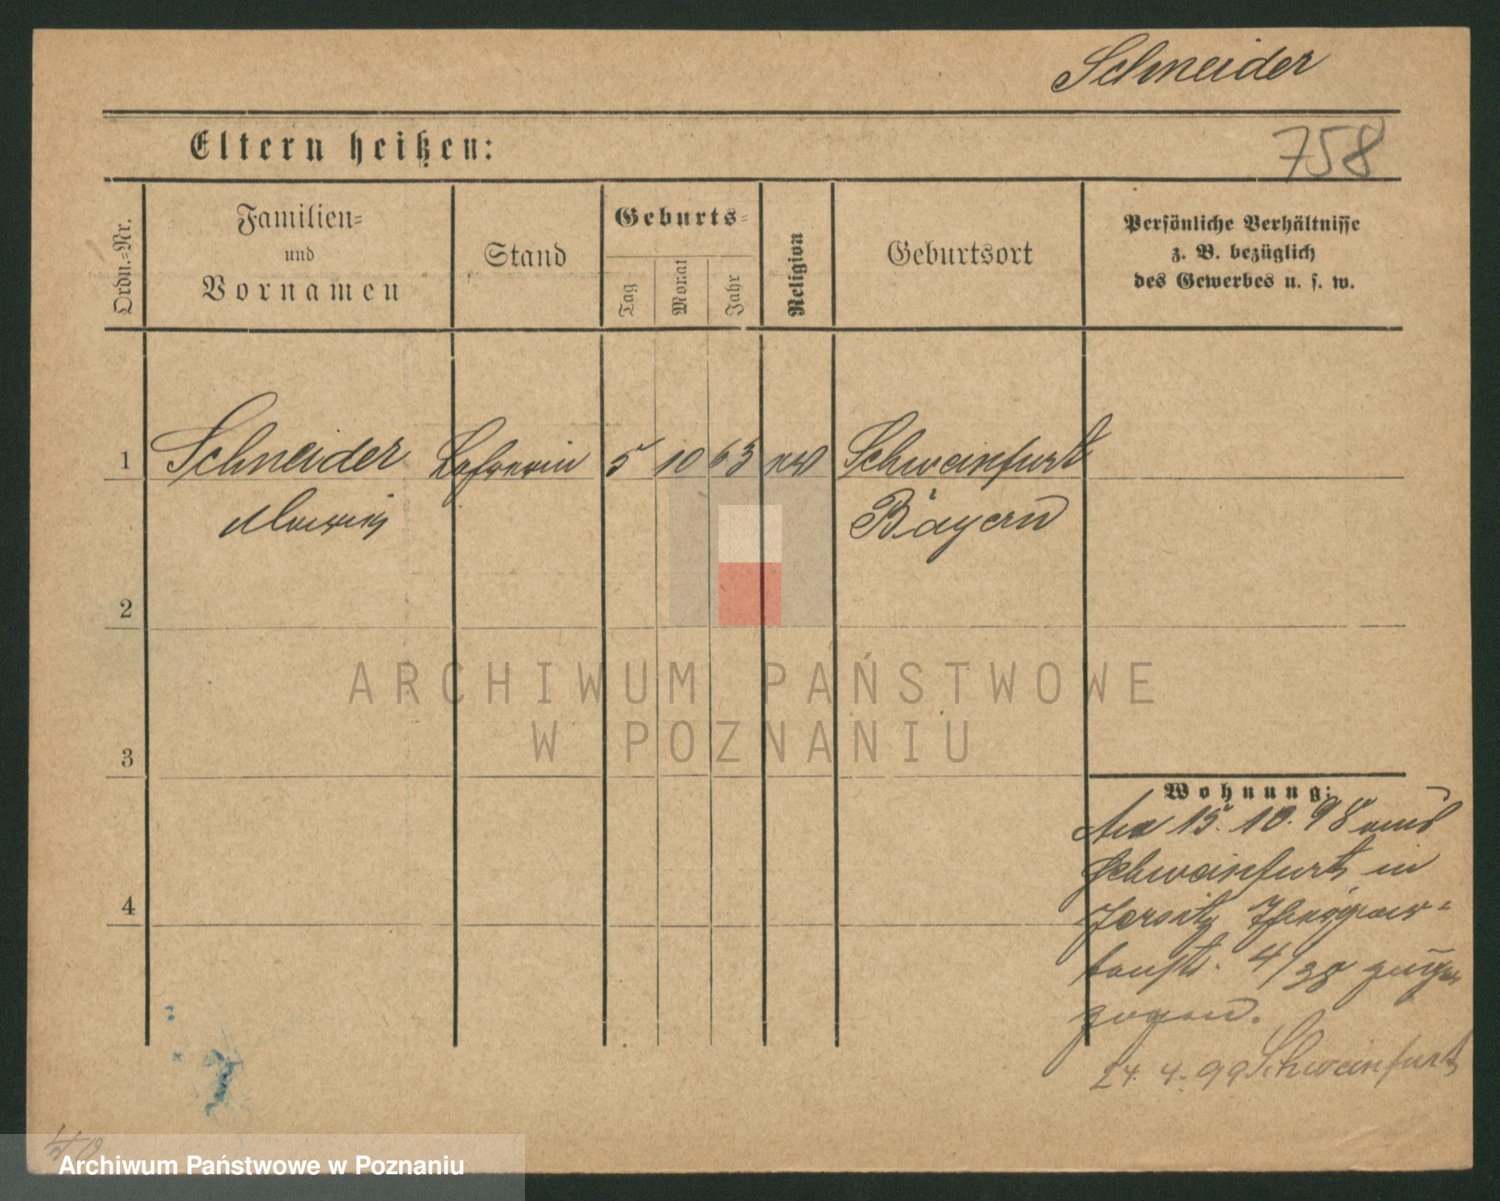 Schneider
758
Eltern heißen:
Ordn.-Nr.
Familien-
und
Vornamen
Stand
Geburts-
Tag
Monat
Jahr
Religion
Geburtsort
Persönliche Verhältnisse
z. B. bezüglich
des Gewerbes u. s. w.
1 Schneider Lehrerin 5 10 63 ev Schweinfurt
Bayern
2
ARCHIWUM PAŃSTWOWE
W POZNANIU
3
Wohnung:
15. 10. 98 aus
Schweinfurt in
Jersitz
4
4/98
zogen.
24. 4. 99 Schweinfurt
Archiwum Państwowe w Poznaniu